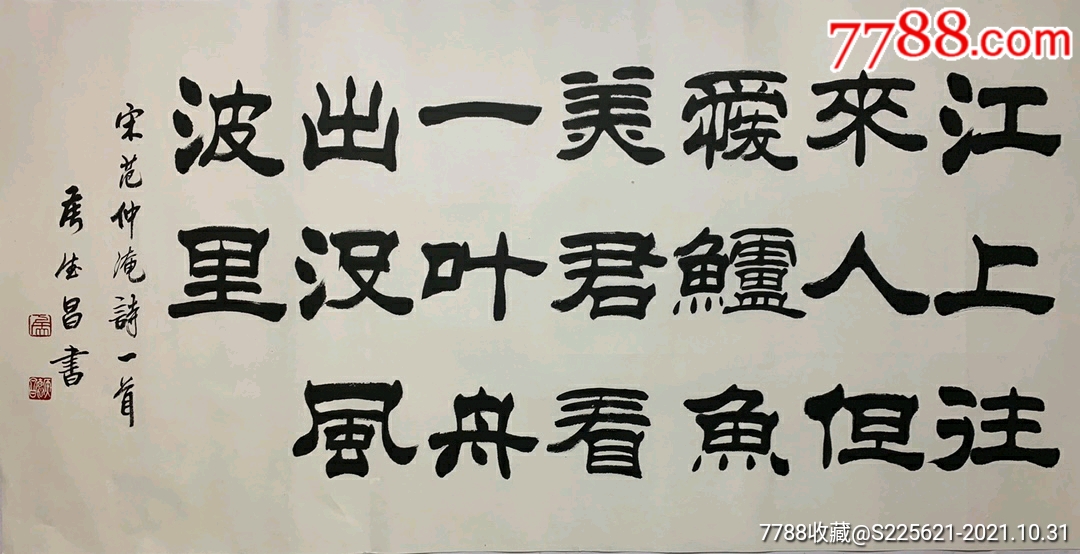 7788.com
江上往
來人但
愛鱸魚
美君看
一叶舟
出没風
波里
宋范仲淹詩一首
德昌書
7788收藏@S225621-2021.10.31